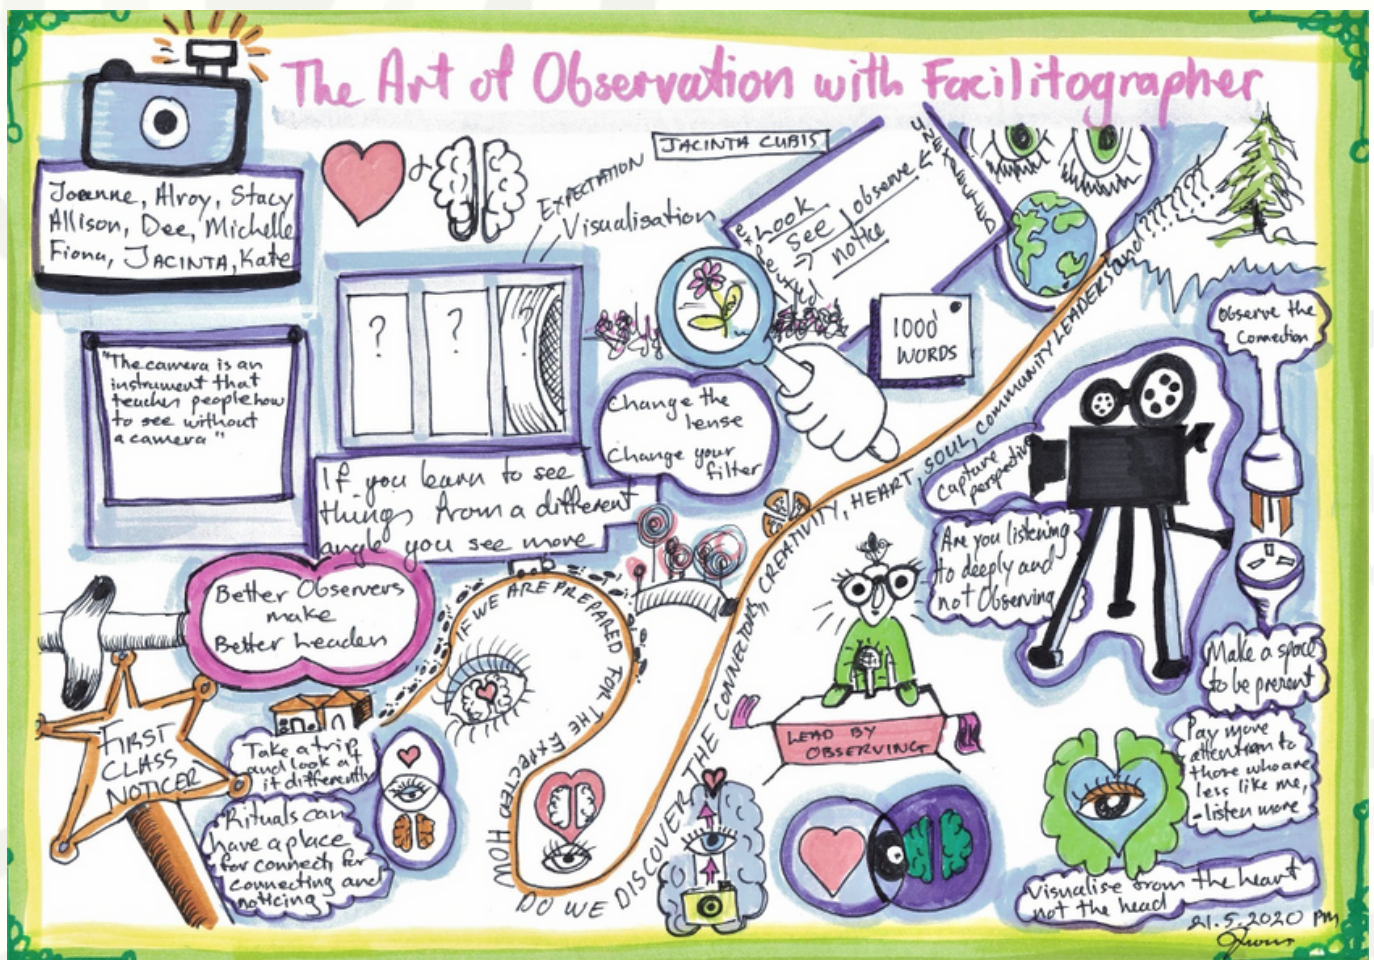 The Art of Observation with Facilitographer
JACINTA CUBIS
Joanne, Alroy, Stacy
Allison, Dee, Michelle
Fiona, JACINTA, Kate
&
EXPECTATION
Visualisation
Look
see
observe
notice
? ? ?
1000
WORDS
"The camera is an
instrument that
teaches people how
to see without
a camera"
Change the
lense
Change your
filter
If you learn to see
things from a different
angle you see more
Observe the
Connection
Capture
perspective
Are you listening
to deeply and
not Observing
Better Observers
make
Better Leaders
FIRST
CLASS
NOTICER
Take a trip
and look at
it differently
Rituals can
have a place
for connects for
connecting and
noticing
IF WE ARE PREPARED FOR THE EXPECTED HOW
DO WE DISCOVER THE CONNECTORS, CREATIVITY, HEART, SOUL, COMMUNITY LEADERS and ???????
LEAD BY
OBSERVING
Make a space
to be present
Pay more
attention to
those who are
less like me,
-listen more
Visualise from the heart
not the head
21.5.2020 PM